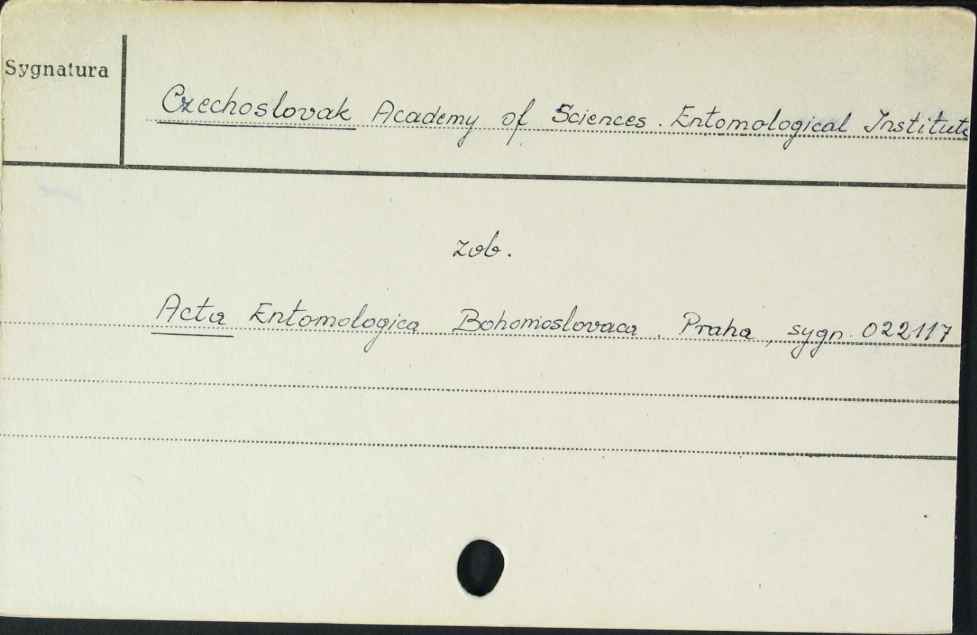 Sygnatura
Czechoslovak Academy of Sciences. Entomological Institute
zob.
Acta Entomologica Bohomoslovaca, Praha, sygn. 022117